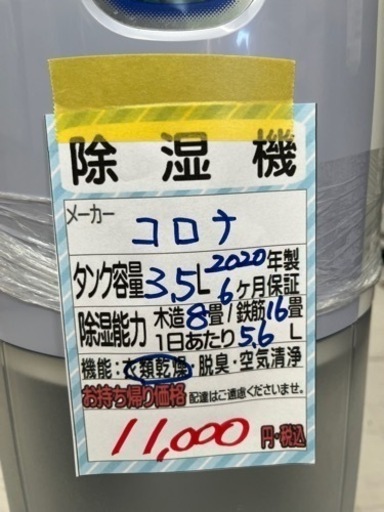 除湿機
メーカー コロナ
タンク容量 3.5L 2020年製
6ヶ月保証
除湿能力 木造8畳/鉄筋16畳
1日あたり5.6L
機能:衣類乾燥・脱臭・空気清浄
お持ち帰り価格 配達はご遠慮くださいませ。
11,000 円・税込